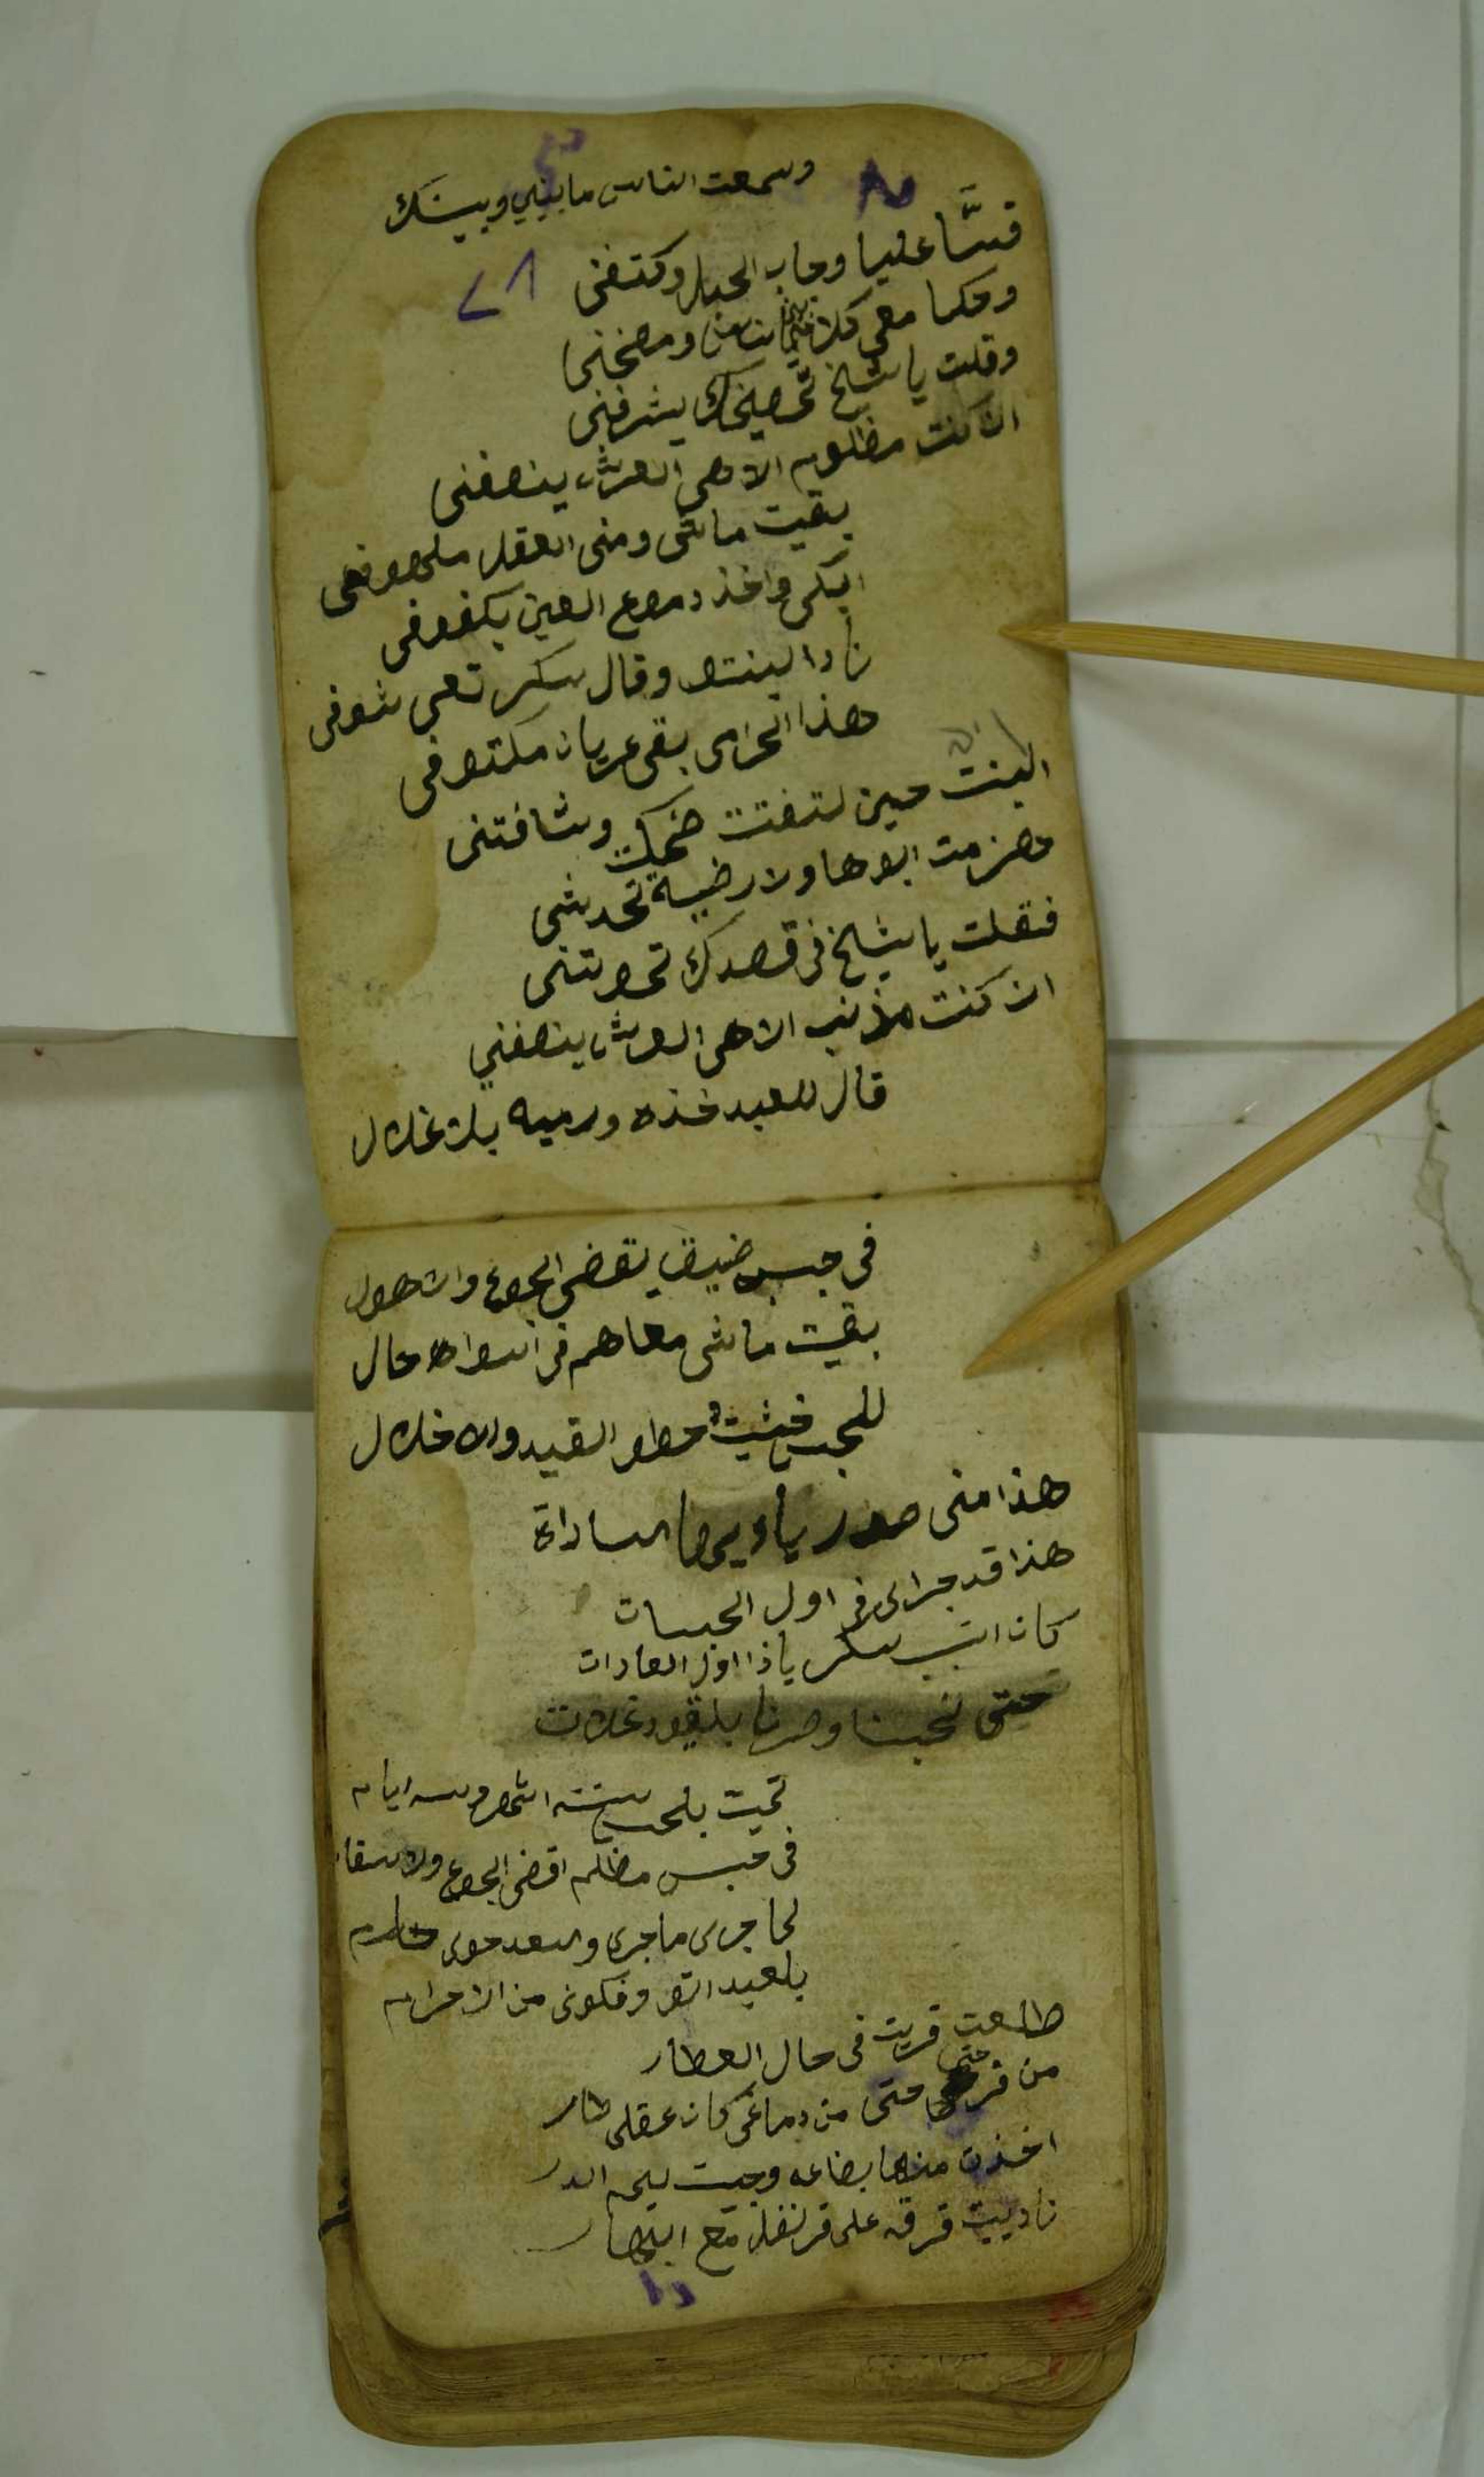 وسمعت الناس ما بيني وبينك
قسَّا عليا وجاب الحبل وكتفنى
وحكا معى كلام ومضخنى
وقلت يا شيخ يشرفنى
ان كنت مظلوم الاهى العرش ينصفنى
بقيت ماشى ومنى العقل ملهوفى
ابكى واخذ دموع العين بكفوفى
نادا لبنتو وقال سكر تعى شوفى
هذا الحرامى بقى عريان مكتوفى
البنت حين لتفتت ضحكت وشافتنى
وهزمت ابوها ولا رضية تحدشى
فقلت يا شيخ فى قصدك تموتنى
ان كنت مذنب الاهى العرش ينصفني
قال للعبد خذه ورميه بلاغلال
فى حبس ضيق يقضى الجوع والاهوال
بقيت ماشى معاهم فى اسوا الاحال
للحبس حطو القيد والاغلال
هذا منى صدر يا السادات
هذا قد جرالى فى اول الحبسات
كان السبب سكر يا ذا اول العادات
حتى نحبسنا وصرنا بلقيود غلات
تميت بلحبس ستة اشهر وسه ايام
فى حبس مظلم اقضى الجوع ولاسقام
لما جرى ما جرى والسعد
بلعيد اتو وفكونى من الاحرام
طلعت قريت فى حال العطار
من فرحى حتى من دماغى كان عقلى طار
اخذت منها بضاعه وجيت ليم الدار
ناديت قرفه على قرنفل مع ابهار